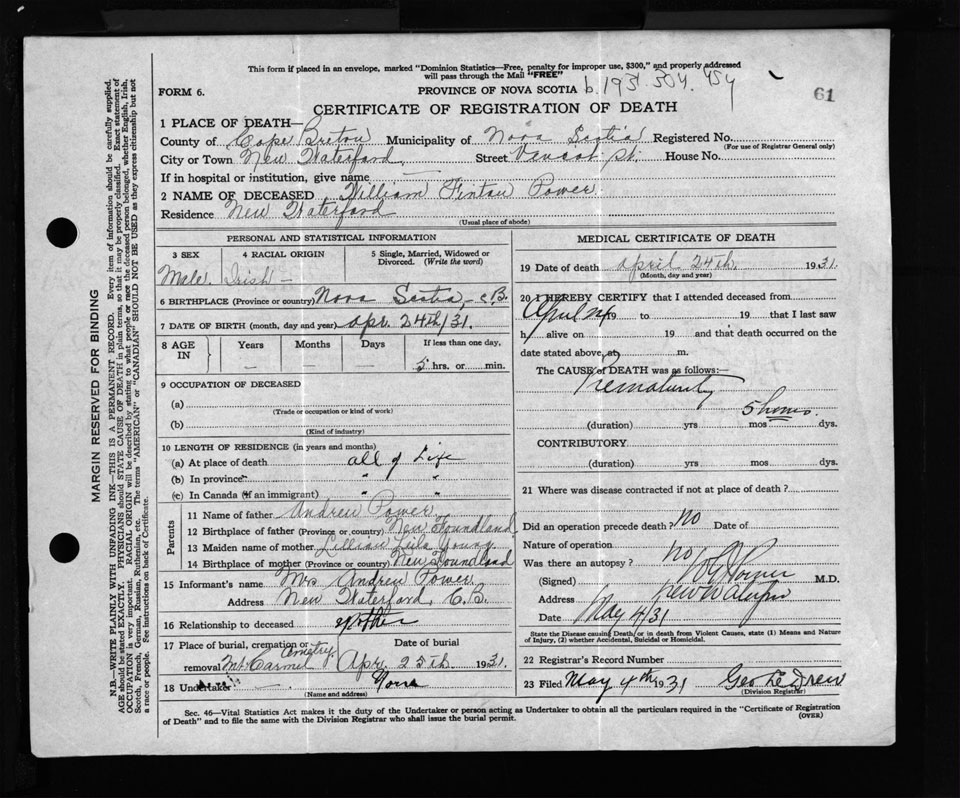 This form if placed in an envelope, marked "Dominion Statistics—Free, penalty for improper use, $300," and properly addressed
will pass through the Mail "FREE"
FORM 6.
PROVINCE OF NOVA SCOTIA
61
CERTIFICATE OF REGISTRATION OF DEATH
1 PLACE OF DEATH—
County of Cape Breton Municipality of Nova Scotia Registered No.
(For use of Registrar General only)
City or Town New Waterford, Street Vincent St. House No.
If in hospital or institution, give name —
2 NAME OF DECEASED William Fintan Power
Residence New Waterford
(Usual place of abode)
PERSONAL AND STATISTICAL INFORMATION
3 SEX 4 RACIAL ORIGIN 5 Single, Married, Widowed or Divorced. (Write the word)
Male. Irish —
6 BIRTHPLACE (Province or country) Nova Scotia, - C.B.
7 DATE OF BIRTH (month, day and year) Apr. 24th/31.
8 AGE IN Years Months Days If less than one day,
— — — 5 hrs. or min.
9 OCCUPATION OF DECEASED
(a)
(Trade or occupation or kind of work)
(b)
(Kind of industry)
10 LENGTH OF RESIDENCE (in years and months)
(a) At place of death all of Life
(b) In province " "
(c) In Canada (if an immigrant) " "
Parents
11 Name of father Andrew Power
12 Birthplace of father (Province or country) New Foundland
13 Maiden name of mother Lillian Leila Young
14 Birthplace of mother (Province or country) New Foundland
15 Informant's name Mrs Andrew Power
Address New Waterford, C.B.
16 Relationship to deceased Mother
17 Place of burial, cremation or removal Mt. Carmel Cemetry
Date of burial Apr. 25th. 1931.
18 Undertaker None
(Name and address)
MEDICAL CERTIFICATE OF DEATH
19 Date of death April 24th, 1931.
(Month, day and year)
20 I HEREBY CERTIFY that I attended deceased from
April 24 19 to 19 that I last saw
h alive on 19 and that death occurred on the
date stated above, at m.
The CAUSE of DEATH was as follows:—
Prematurity
5 hours.
(duration) yrs mos dys.
CONTRIBUTORY
(duration) yrs. mos. dys.
21 Where was disease contracted if not at place of death?
Did an operation precede death? No Date of
Nature of operation
Was there an autopsy? no
(Signed) M.D.
Address New Waterford
Date May 4/31
State the Disease causing Death, or in death from Violent Causes, state (1) Means and Nature
of Injury, (2) whether Accidental, Suicidal or Homicidal.
22 Registrar's Record Number
23 Filed May 4th 1931 Geo Le Drew
(Division Registrar)
Sec. 46—Vital Statistics Act makes it the duty of the Undertaker or person acting as Undertaker to obtain all the particulars required in the "Certificate of Registration
of Death" and to file the same with the Division Registrar who shall issue the burial permit.
(OVER)
MARGIN RESERVED FOR BINDING
N.B.—WRITE PLAINLY WITH UNFADING INK—THIS IS A PERMANENT RECORD. Every item of information should be carefully supplied.
AGE should be stated EXACTLY. PHYSICIANS should STATE CAUSE OF DEATH in plain terms, so that it may be properly classified. Exact statement of
OCCUPATION is very important. RACIAL ORIGIN will be described by stating to what people or race the deceased person belonged, whether English, Irish,
Scotch, French, German, Russian, Ruthenian, etc. The terms "AMERICAN" or "CANADIAN" SHOULD NOT BE USED as they express citizenship but not
a race or people. See instructions on back of Certificate.